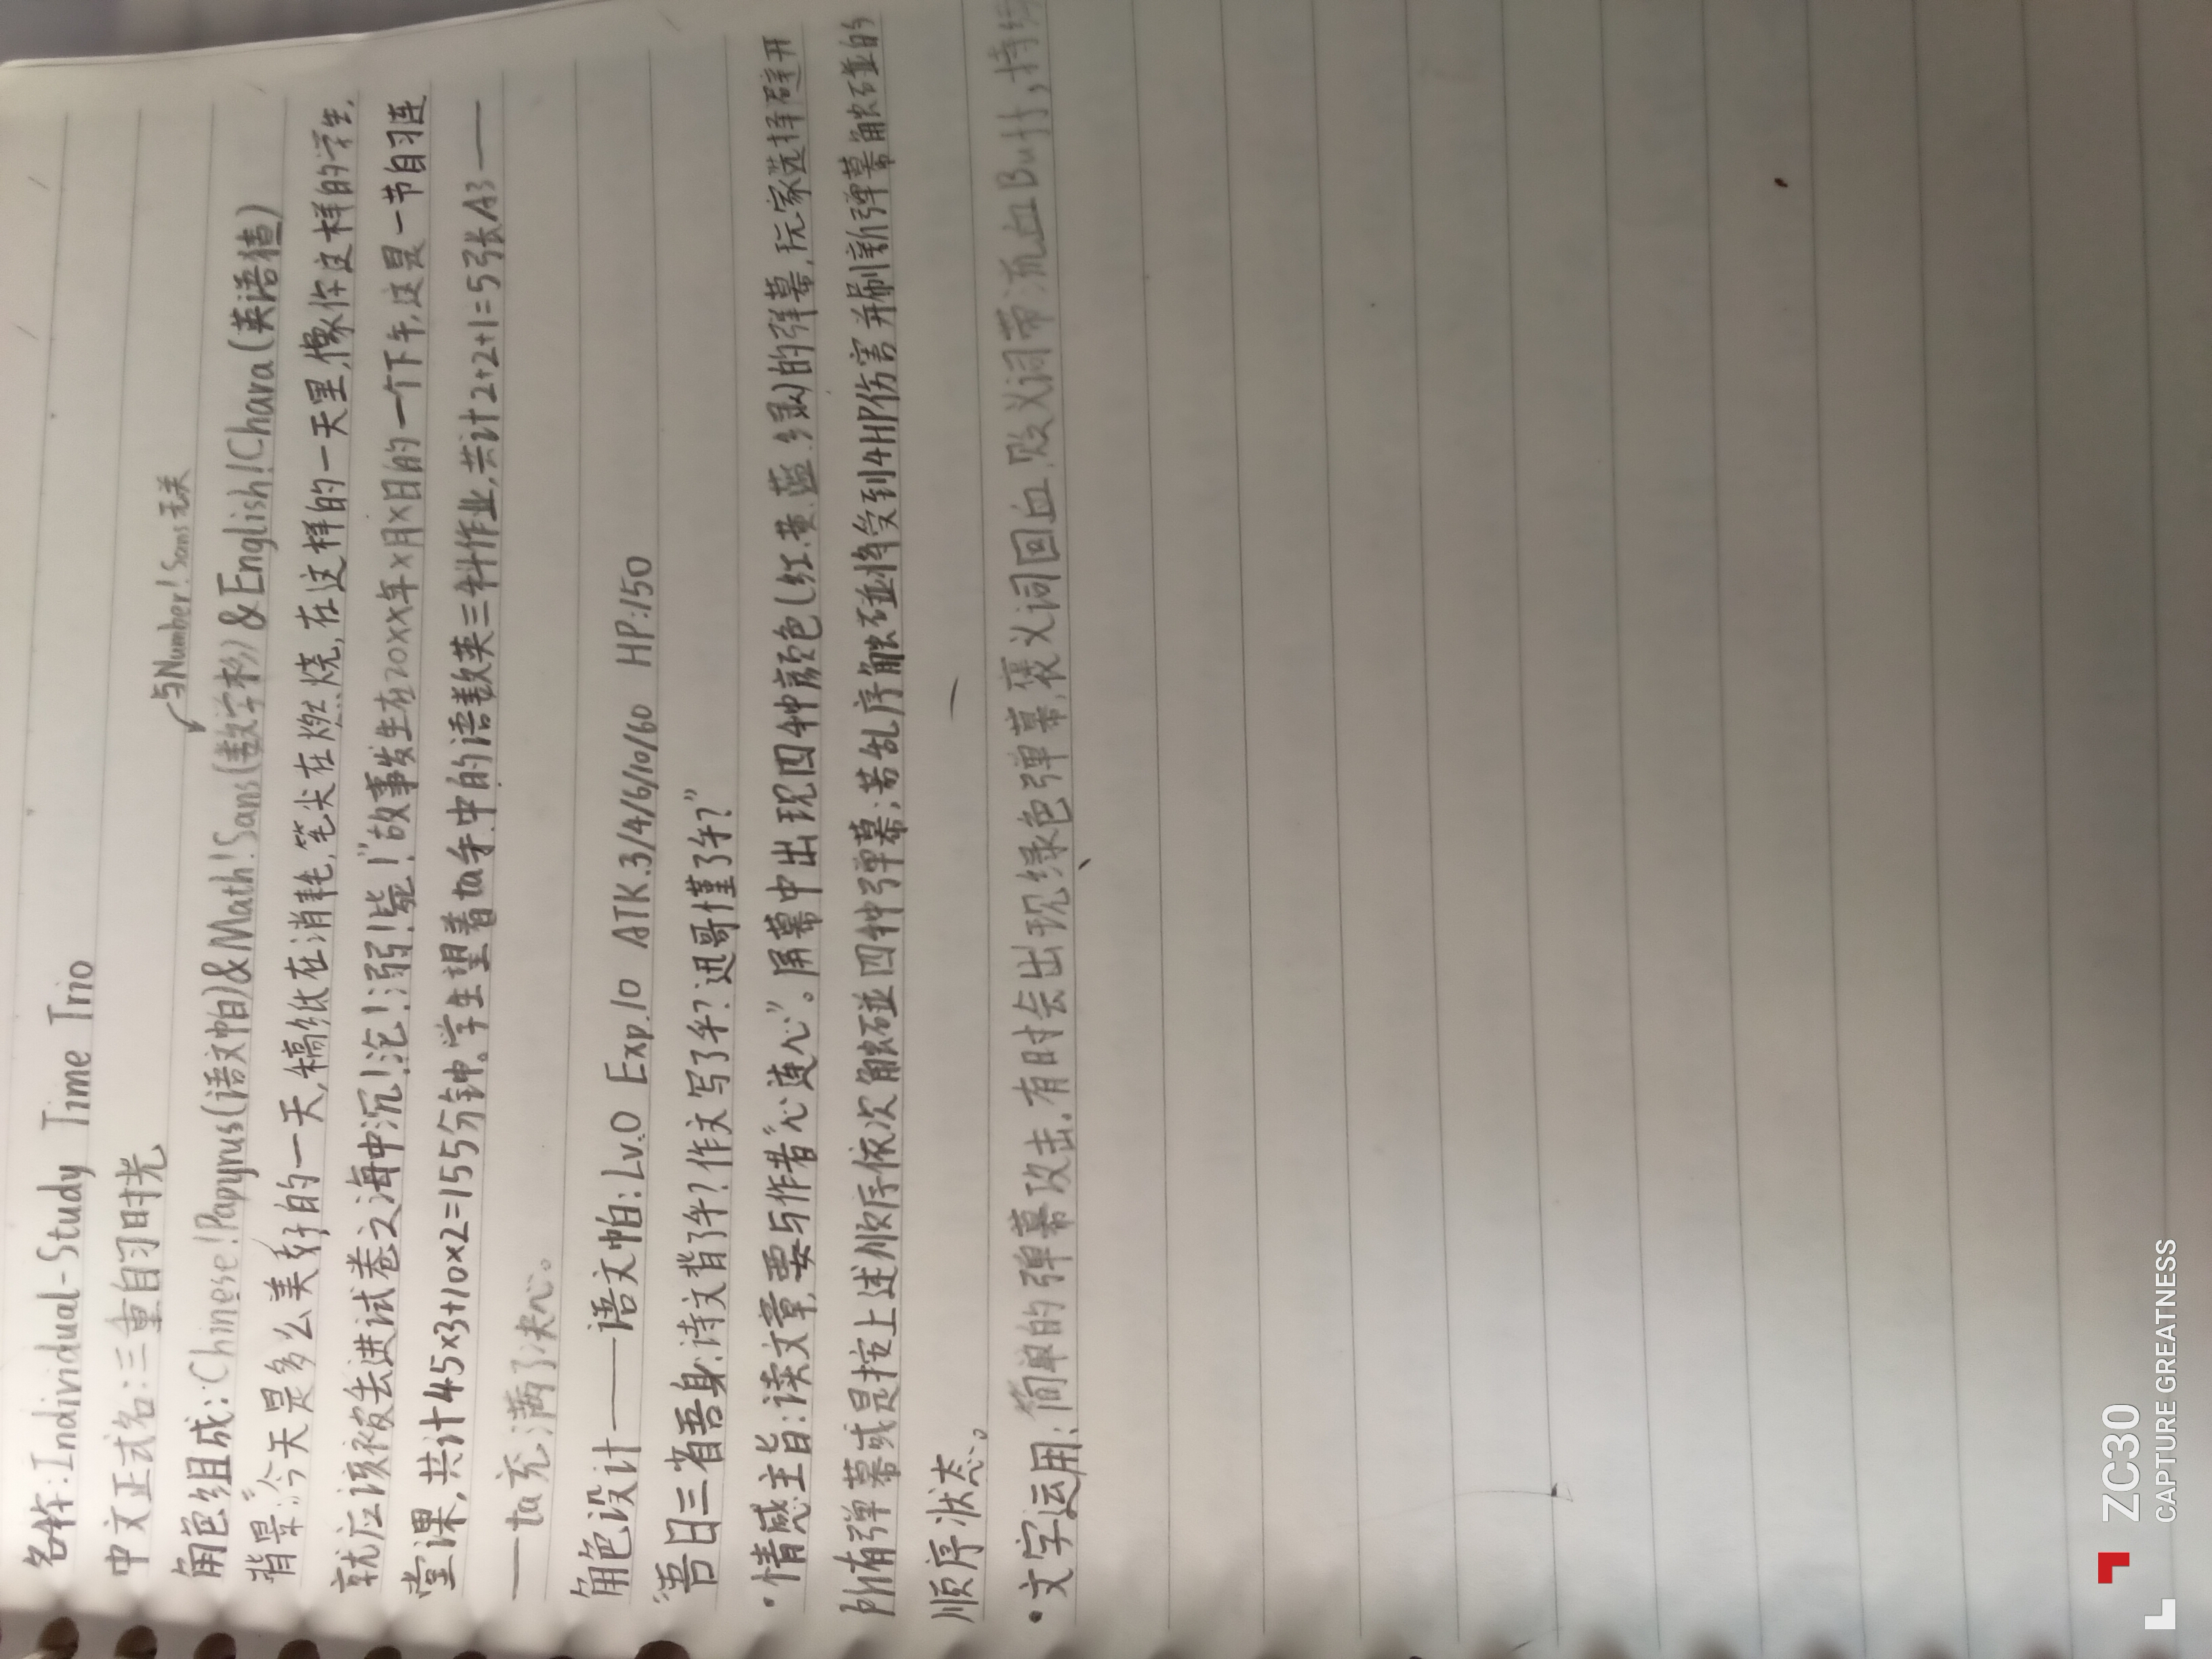 名称:Individual-Study Time Trio
中文正式名:三重自习时光
与Number!Sans无关
角色组成:Chinese!Papyrus(语文帕)&Math!Sans(数学杉)&English!Chara(英语猹)
背景:“今天是多么美好的一天,稿纸在消耗,笔尖在燃烧,在这样的一天里,像你这样的学生,
就应该被丢进试卷之海中沉!沦!溺!毙!”故事发生在20XX年X月X日的一个下午,这是一节自习连
堂课,共计45×3+10×2=155分钟。学生望着ta手中的语数英三科作业,共计2+2+1=5张A3——
——ta充满了决心。
角色设计——语文帕:Lv.0 Exp.10 ATK.3/4/6/10/60 HP:150
“吾日三省吾身:诗文背了乎?作文写了乎?迅哥懂了乎?”
·情感主旨:读文章,要与作者“心连心”。屏幕中出现四种颜色(红.黄.蓝.绿)的弹幕,玩家选择避开
所有弹幕或是按上述顺序依次触碰四种弹幕;若乱序触碰将受到4HP伤害并刷新弹幕触碰的
顺序状态。
·文字运用:简单的弹幕攻击.有时会出现绿色弹幕,褒义词回血.贬义词带流血Buff,持
ZC30
CAPTURE GREATNESS